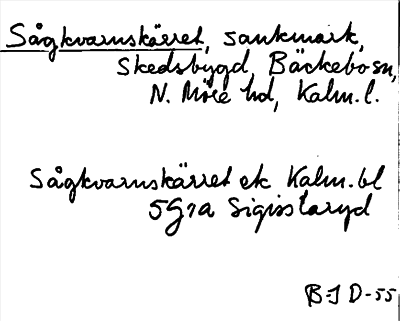 Sågkvarnskärret, sankmark,
Skedsbygd, Bäckebo sn,
N. Möre hd, Kalm. l.
Sågkvarnskärret ek Kalm. bl
5G7a Sigisstaryd
B-J D-55